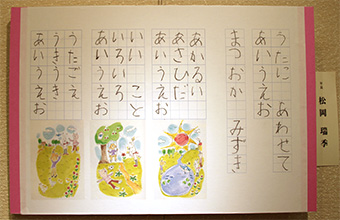 うたに　あわせて
あいうえお
まつおか　みずき
あかるい
あさひだ
あいうえお
いい　こと
いろいろ
あいうえお
うたごえ
うきうき
あいうえお
松岡　瑞季